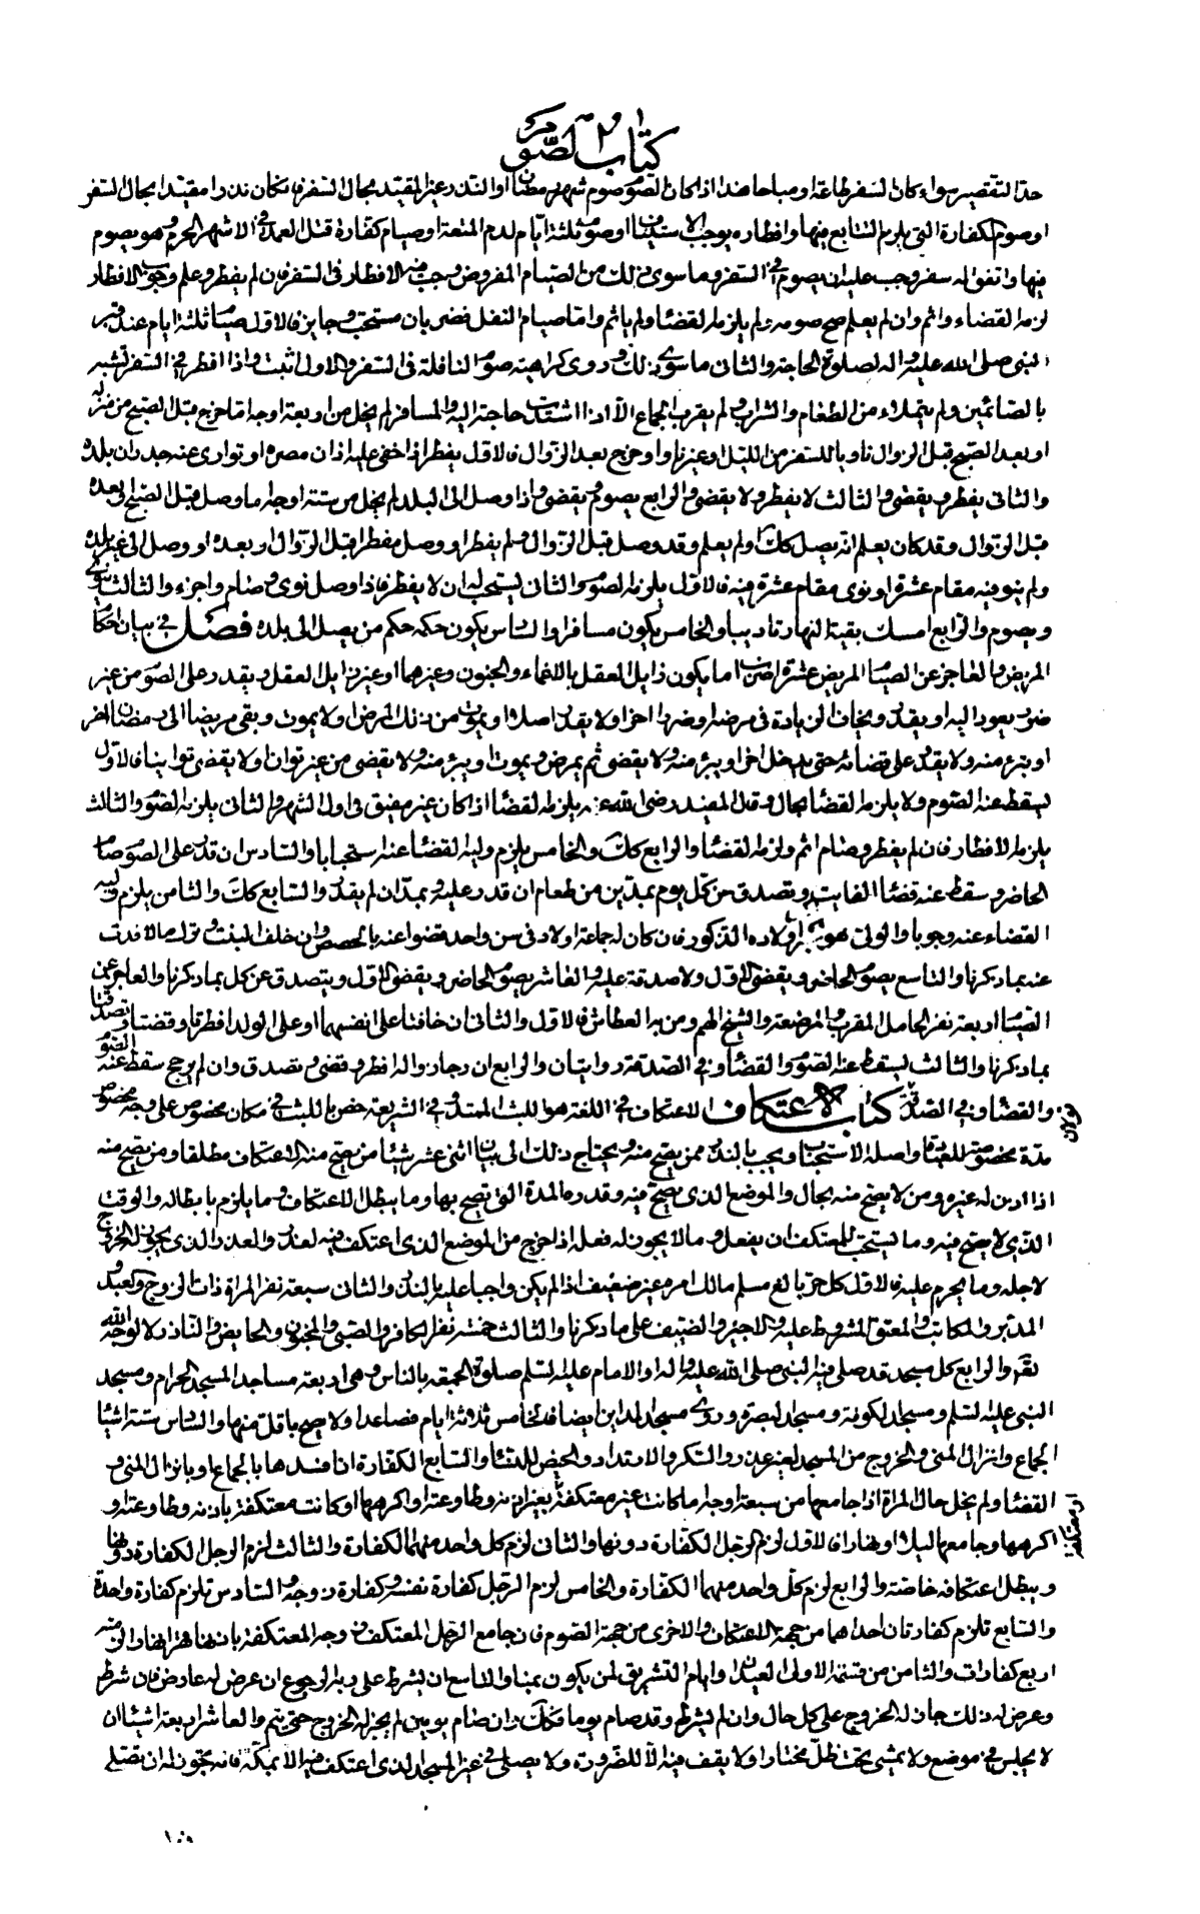 كتاب الصوم
حد التقصير سواء كان السفر طاعة او مباحا هذا اذا كان الصوم صوم شهر رمضان او النذر غير المقيد بحال السفر فان كان نذرا مقيدا بحال السفر
او صوم الكفارة التي يلزم التتابع فيها وافطاره يوجب الاستيناف او صوم ثلثة ايام لدم المتعة او صيام كفارة قتل العمد في الاشهر الحرم وهو يصوم
فيها واتفق له سفر وجب عليه ان يصوم في السفر وما سوى ذلك من الصيام المفروض وجب فيه الافطار في السفر فان لم يفطر وعلم وجوب الافطار
لزمه القضاء واثم وان لم يعلم صح صومه ولم يلزمه القضاء ولم ياثم واما صيام النفل فضربان مستحب وجايز فالاول صيام ثلثة ايام عند قبر
النبي صلى الله عليه واله لصلوة الحاجة والثاني ما سوى ذلك وروى كراهية صوم النافلة في السفر والاول اثبت واذا افطر في السفر تشبه
بالصائمين ولم يتملاء من الطعام والشراب ولم يقرب الجماع الا اذا اشتدت حاجته اليه والمسافر لم يخل من اربعة اوجه اما خرج قبل الصبح من منزله
او بعد الصبح قبل الزوال ناويا للسفر من الليل او غير ناو او خرج بعد الزوال فالاول يفطر اذا خفى عليه اذان مصره او توارى عنه جدران بلده
والثاني يفطر ويقضى والثالث لا يفطر ولا يقضى والرابع يصوم ويقضى واذا وصل الى البلد لم يخل من ستة اوجه اما وصل قبل الصبح او بعده
قبل الزوال وقد كان يعلم انه يصل كك او لم يعلم وقد وصل قبل الزوال ولم يفطر او وصل مفطرا قبل الزوال او بعده او وصل الى غير بلده
ولم ينو فيه مقام عشرة او نوى مقام عشرة فيه فالاول يلزمه الصوم والثاني يستحب له ان لا يفطر فاذا وصل نوى وصام واجزء والثالث ينوى
ويصوم والرابع امسك بقية النهار تاديبا والخامس يكون مسافرا والسادس يكون حكمه حكم من يصل الى بلده فصل في بيان احكام
المريض والعاجز عن الصيام المريض عشرة اضرب اما يكون زايل العقل بالاغماء والجنون وغيرهما او غير زايل العقل ويقدر على الصوم من غير
ضرر يعود اليه او يقدر ويخاف الزيادة في مرضه او ضررا اخر او لا يقدر اصلا او يموت من ذلك المرض او لا يموت وبقى مريضا الى رمضان اخر
او يبرء منه ولا يقدر على قضائه حتى يدخل اخر او يبرء منه ولا يقضى ثم يمرض ويموت او يبرء منه ولا يقضى من غير توان او لا يقضى توانيا فالاول
يسقط عنه الصوم ولا يلزمه القضاء بحال وقال المفيد رضى الله عنه يلزمه القضاء اذا كان غير مفيق في اول الشهر والثاني يلزمه الصوم والثالث
يلزمه الافطار فان لم يفطر وصام اثم ولزمه القضاء والرابع كك والخامس يلزم وليه القضاء عنه استحبابا والسادس ان قدر على الصوم صام
الحاضر وسقط عنه قضاء الفايت وتصدق عن كل يوم بمدين من طعام ان قدر عليه وبمد ان لم يقدر والسابع كك والثامن يلزم وليه
القضاء عنه وجوبا والولى هو اكبر اولاده الذكور فان كان له جماعة اولاد في سن واحد قضوا عنه بالحصص وان خلف البنت وترك مالا فدت
عنه بما ذكرنا والتاسع يصوم الحاضر ويقضى الاول ولا صدقة عليه والعاشر يصوم الحاضر ويقضى الاول ويتصدق عن كل بما ذكرنا والعاجز عن
الصيام اربعة نفر الحامل المقرب والمرضعة والشيخ الهم ومن به العطاش فالاول والثاني ان خافتا على انفسهما او على الولد افطرتا وقضتا وتصدقتا
بما ذكرنا والثالث يسقط عنه الصوم والقضاء وفي الصدقة روايتان والرابع ان رجا زواله افطر وقضى وتصدق وان لم يرج سقط عنه الصوم
والقضاء وفي الصدقة قولان كتاب الاعتكاف الاعتكاف في اللغة هو اللبث الممتد وفي الشريعة خص باللبث في مكان مخصوص على وجه مخصوص
مدة مخصوصة للعبادة واصله الاستحباب ويجب بالنذر ممن يصح منه ويحتاج ذلك الى بيان اثنى عشر شيئا من يصح منه الاعتكاف مطلقا ومن يصح منه
اذا اذن له غيره ومن لا يصح منه بحال والموضع الذي يصح فيه وقدر المدة التي تصح بها وما يبطل الاعتكاف وما يلزم بابطاله والوقت
الذي لا يصح فيه وما يستحب للمعتكف ان يفعل وما لا يجوز له فعله اذا خرج من الموضع الذي اعتكف فيه لعذر والعذر الذي يجوز له الخروج
لاجله وما يحرم عليه فالاول كل حر بالغ مسلم مالك امره غير ضيف اذا لم يكن واجبا عليه بالنذر والثاني سبعة نفر المراة ذات الزوج والعبد و
المدبر والمكاتب والمعتق المشروط عليه والاجير والضيف على ما ذكرنا والثالث خمسة نفر الكافر والصبي والمجنون والحايض والناذر لا لوجه الله
تعم والرابع كل مسجد قد صلى فيه النبي صلى الله عليه واله او الامام عليه السلم صلوة الجمعة بالناس وهي اربعة مساجد المسجد الحرام ومسجد
النبي عليه السلم ومسجد الكوفة ومسجد البصرة وروى مسجد المداين ايضا فالخامس ثلاثة ايام فصاعدا ولا يصح باقل منها والسادس ستة اشياء
الجماع وانزال المني والخروج من المسجد لغير عذر والسكر والارتداد والحيض للنساء والسابع الكفارة ان افسدها بالجماع او بانزال المني و
القضاء ولم يخل حال المراة اذا جامعها من سبعة اوجه اما كانت غير معتكفة او معتكفة بغير اذنه وطاوعته او اكرهها او كانت معتكفة باذنه وطاوعته او
اكرهها وجامعها ليلا او نهارا فالاول لزم الرجل الكفارة دونها والثاني لزم كل واحد منهما الكفارة والثالث لزم الرجل الكفارة دونها
ويبطل اعتكافه خاصة والرابع لزم كل واحد منهما الكفارة والخامس لزم الرجل كفارة نفسه وكفارة زوجه والسادس تلزم كفارة واحدة
والسابع تلزم كفارتان احداهما من جهة الاعتكاف والاخرى من جهة الصوم فان جامع الرجل المعتكف زوجه المعتكفة باذنها نهارا لزمته
اربع كفارات والثامن من قسمة الاولى العيدان وايام التشريق لمن يكون بمنا والتاسع ان يشرط على ربه الرجوع ان عرض له عارض فان شرط
وعرض له ذلك جاز له الخروج على كل حال وان لم يشرط وقد صام يوما فكك وان صام يومين لم يجز له الخروج حتى يتم والعاشر اربعة اشياء ان
لا يجلس في موضع ولا يمشى تحت ظل مختارا ولا يقف فيه الا للضرورة ولا يصلى في غير المسجد الذي اعتكف فيه الا بمكة فانه يجوز له ان يصلى